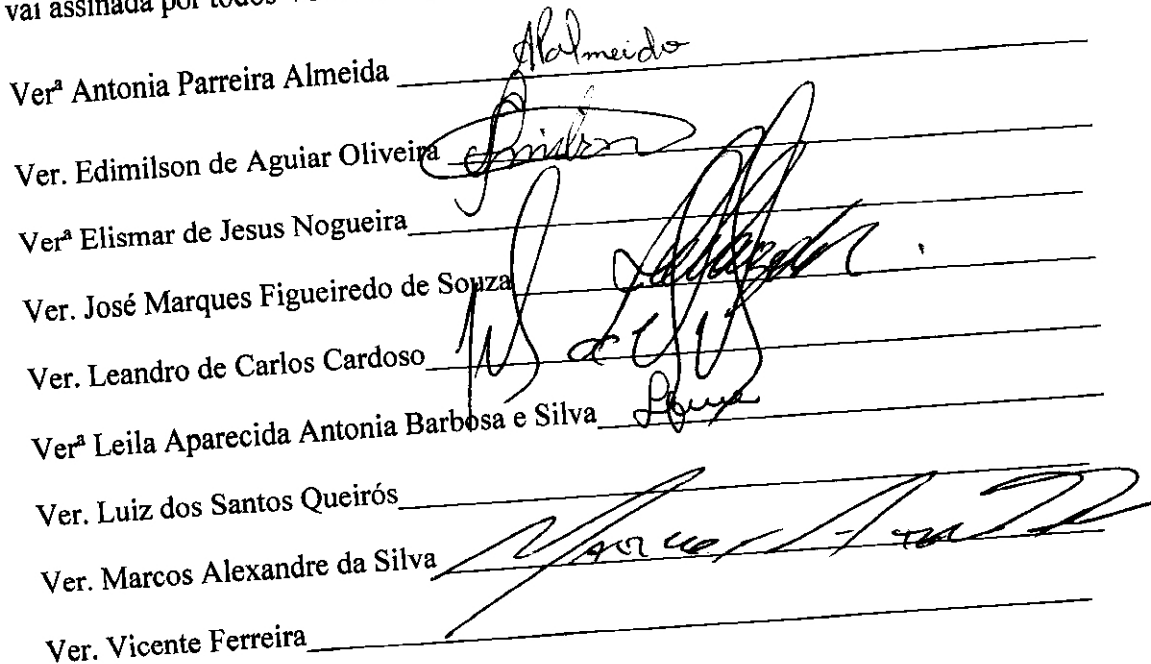 vai assinada por todos
Verª Antonia Parreira Almeida APAlmeida
Ver. Edimilson de Aguiar Oliveira
Verª Elismar de Jesus Nogueira
Ver. José Marques Figueiredo de Souza
Ver. Leandro de Carlos Cardoso
Verª Leila Aparecida Antonia Barbosa e Silva
Ver. Luiz dos Santos Queirós
Ver. Marcos Alexandre da Silva
Ver. Vicente Ferreira